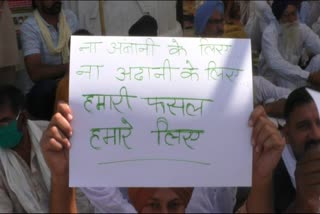 ना अंबानी के लिए
ना अदानी के लिए
हमारी फसल
हमारे लिए